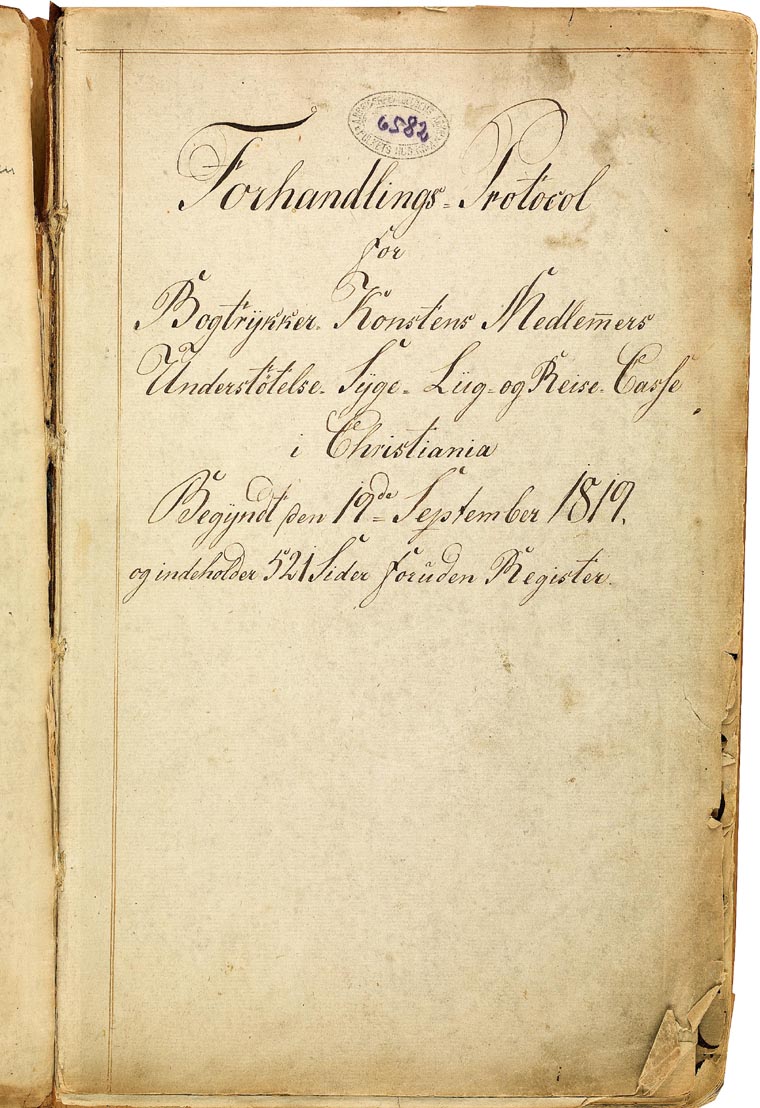 6582
Forhandlings=Protocol
for
Bogtrÿkker-Konstens Medlem̅ers
Understøtelse-Sÿge-Liig-og Reise-Casse
i Christiania
Begÿndt den 19de September 1819.
og indeholder 521 Sider foruden Register.